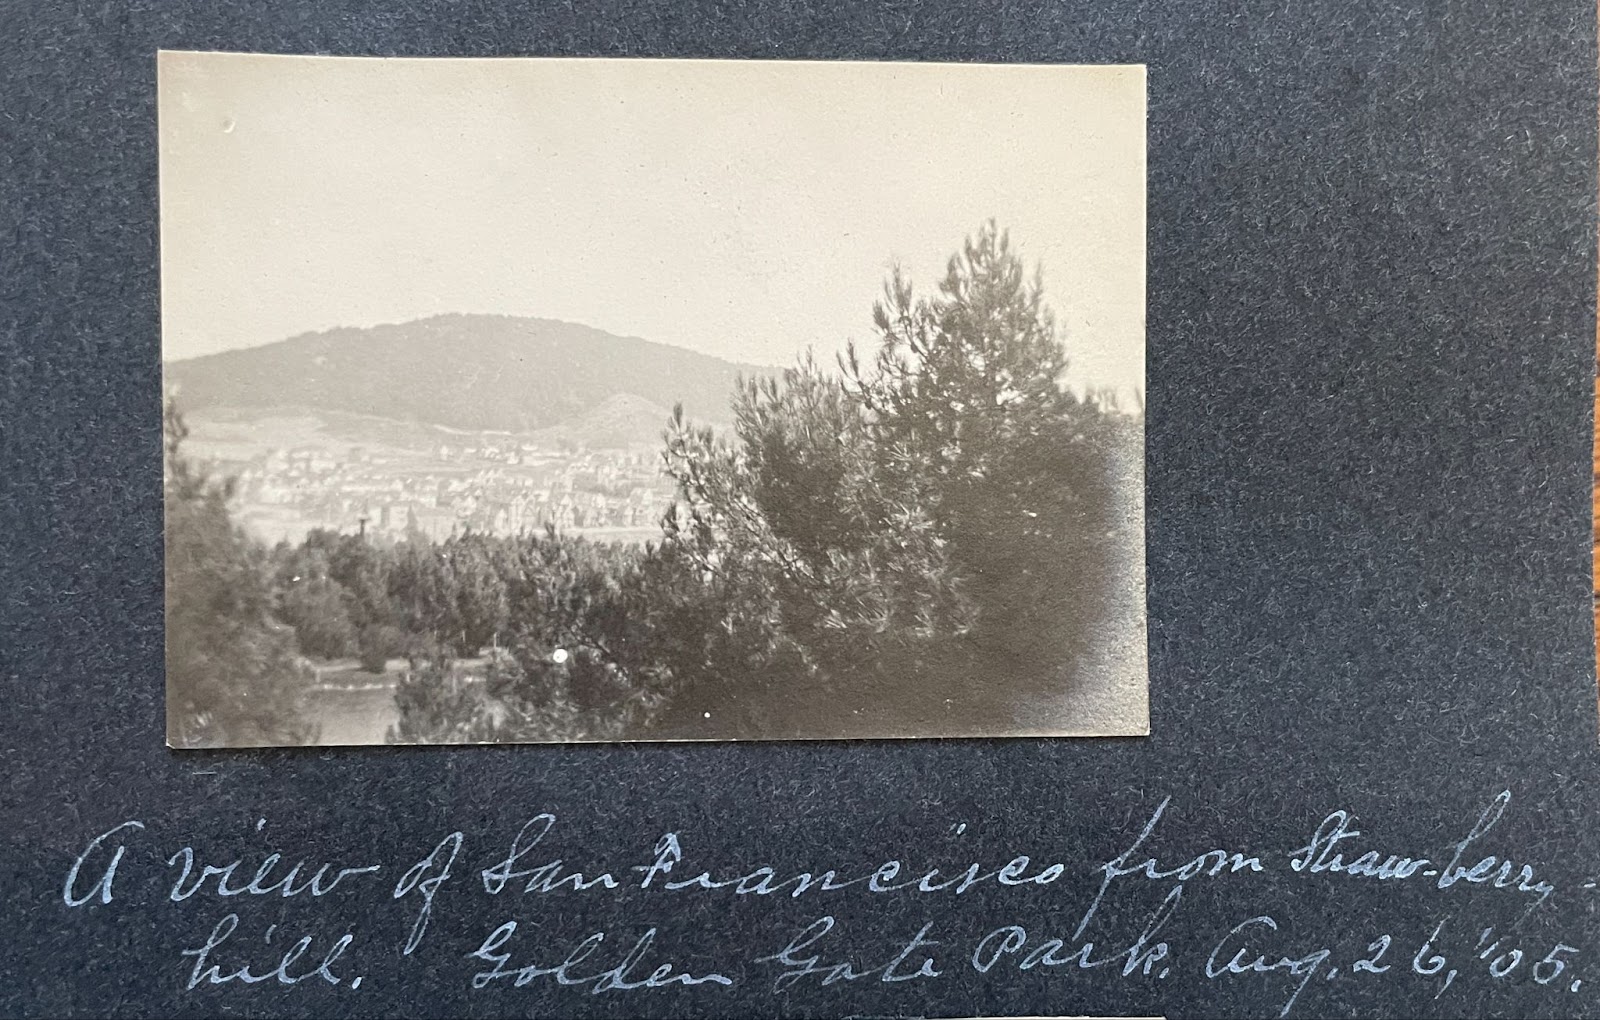 A view of San Francisco from Straw-berry-
hill. Golden Gate Park. Aug. 26, '05.